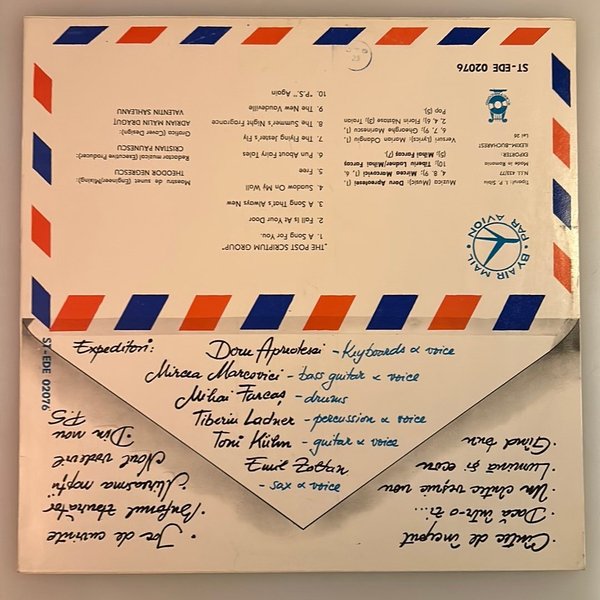 ST-EDE 02076
BY AIR MAIL · PAR AVION
Tiparul: I. P. Sibiu
Made in Romania
EXPORTER:
ILEXIM-BUCHAREST
Lei 26
Muzica (Music): Doru Apreotesei (1,
4, 8, 9); Mircea Marcovici (1, 6,
10); Tiberiu Ladner/Mihai Farcaș
(5); Mihai Farcaș (7)
Versuri (Lyrics): Marian Odangiu (1,
6, 7, 9); Gheorghe Marinescu (1,
2, 4, 6); Florin Năstase (3); Traian
Pop (5)
"THE POST SCRIPTUM GROUP"
1. A Song For You
2. Fall Is At Your Door
3. A Song That's Always New
4. Suadow On My Wall
5. Free
6. Pun About Fairy Tales
7. The Flying Jester's Fly
8. The Summer's Night Fragrance
9. The New Vaudeville
10. "P.S." Again
Maestru de sunet (Engineer/Mixing):
THEODOR NEGRESCU
Redactor muzical (Executive Producer):
CRISTIAN PAUNESCU
Grafica (Cover Design):
ADRIAN MALIN DRAGUT
VALENTIN SAHLEANU
ST-EDE 02076
Expeditori:
Doru Apreotesei - keyboards & voice
Mircea Marcovici - bass guitar & voice
Mihai Farcaș - drums
Tiberiu Ladner - percussion & voice
Toni Kühn - guitar & voice
Emil Zoltan
- sax & voice
· Cîntec de început
· Dacă într-o zi...
· Un cîntec veșnic nou
· Lumină și ecou
· Gînd bun
· Joc de cuvinte
· Bufonul zburător
· Mireasma nopții
· Noul vodevil
· Din nou P.S